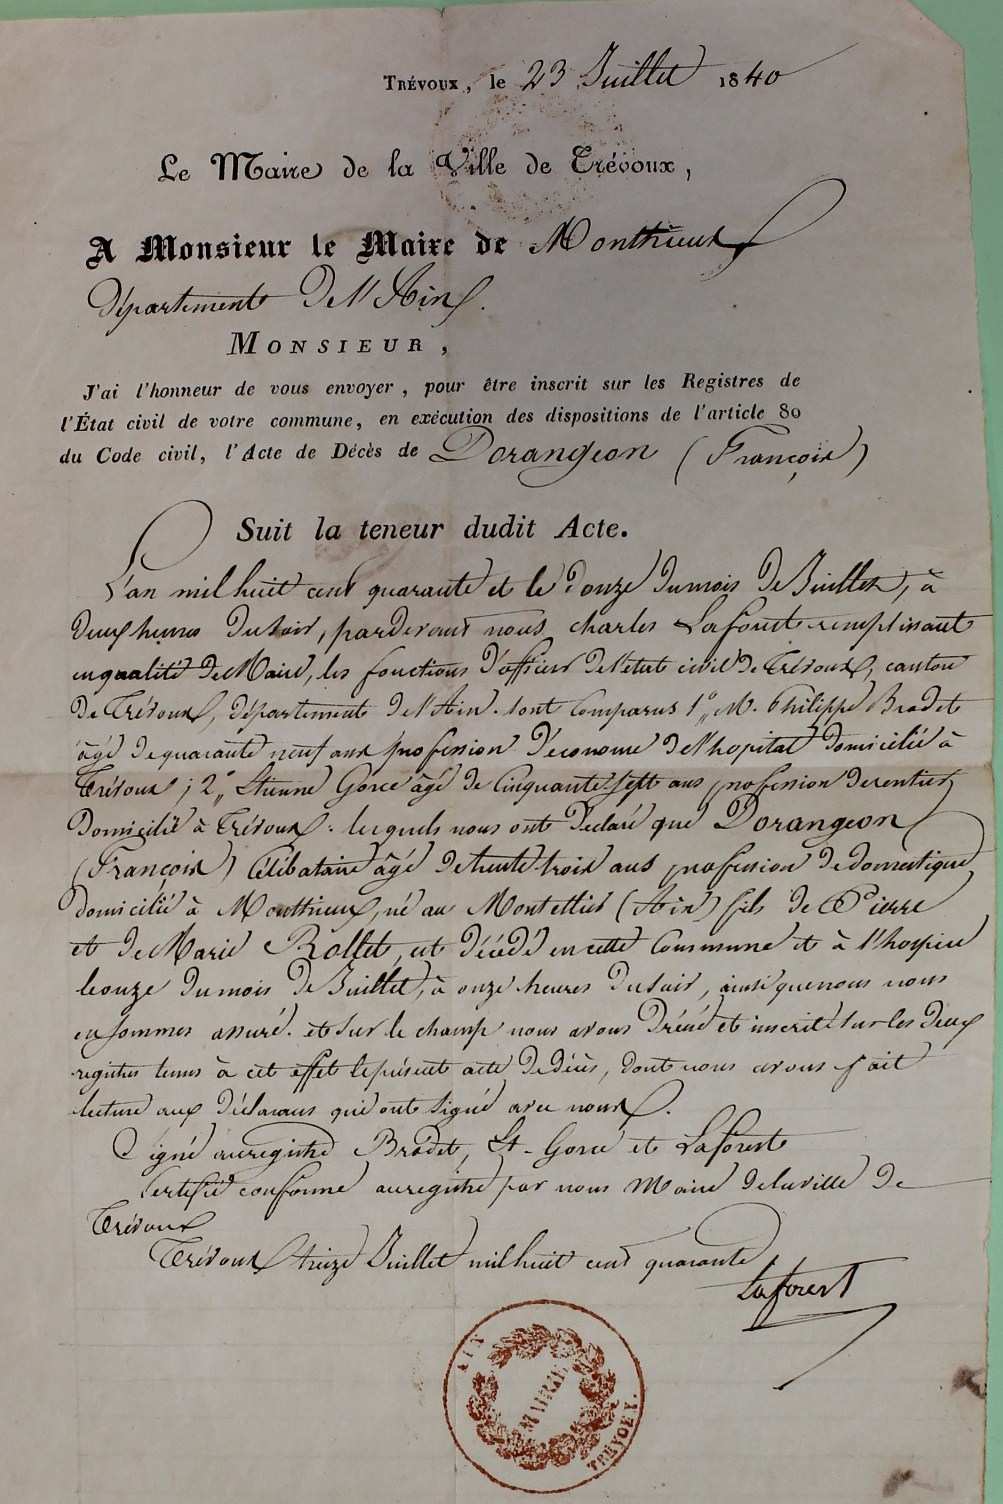 Trévoux, le 23 Juillet 1840
Le Maire de la Ville de Trévoux,
A Monsieur le Maire de Monthieux
département de l'Ain.
Monsieur,
J'ai l'honneur de vous envoyer, pour être inscrit sur les Registres de
l'État civil de votre commune, en exécution des dispositions de l'article 80
du Code civil, l'Acte de Décès de Dorangeon (François)
Suit la teneur dudit Acte.
L'an mil huit cent quarante et le douze du mois de Juillet, à
deux heures du soir, pardevant nous charles Laforest remplissant
en qualité de Maire, les fonctions d'officier de l'état civil de Trévoux, canton
de Trévoux, département de l'Ain. sont Comparus 1° M. Philippe Brodet
âgé de quarante neuf ans profession d'économe de l'hopital domicilié à
Trévoux ; 2° Etienne Gorce âgé de Cinquante sept ans profession de rentier
Domicilié à Trévoux. lesquels nous ont Déclaré que Dorangeon
(François) Célibataire âgé de trente trois ans profession de domestique
domicilié à Monthieux, né au Montellier (Ain) fils de Pierre
et de Marie Rollet, est décédé en cette Commune et à l'hospice
le onze du mois de Juillet, à onze heures du soir, ainsi que nous nous
en sommes assuré. et sur le champ nous avons Dréssé et inscrit sur les deux
registres tenus à cet effet le présent acte de décès, dont nous avons fait
lecture aux déclarans qui ont Signé avec nous.
Signé au registre Brodet, Et. Gorce et Laforest
Certifié conforme au registre par nous Maire de la ville de
Trévoux
Trévoux treize Juillet mil huit cent quarante
Laforest
AIN
MAIRIE
TREVOUX.